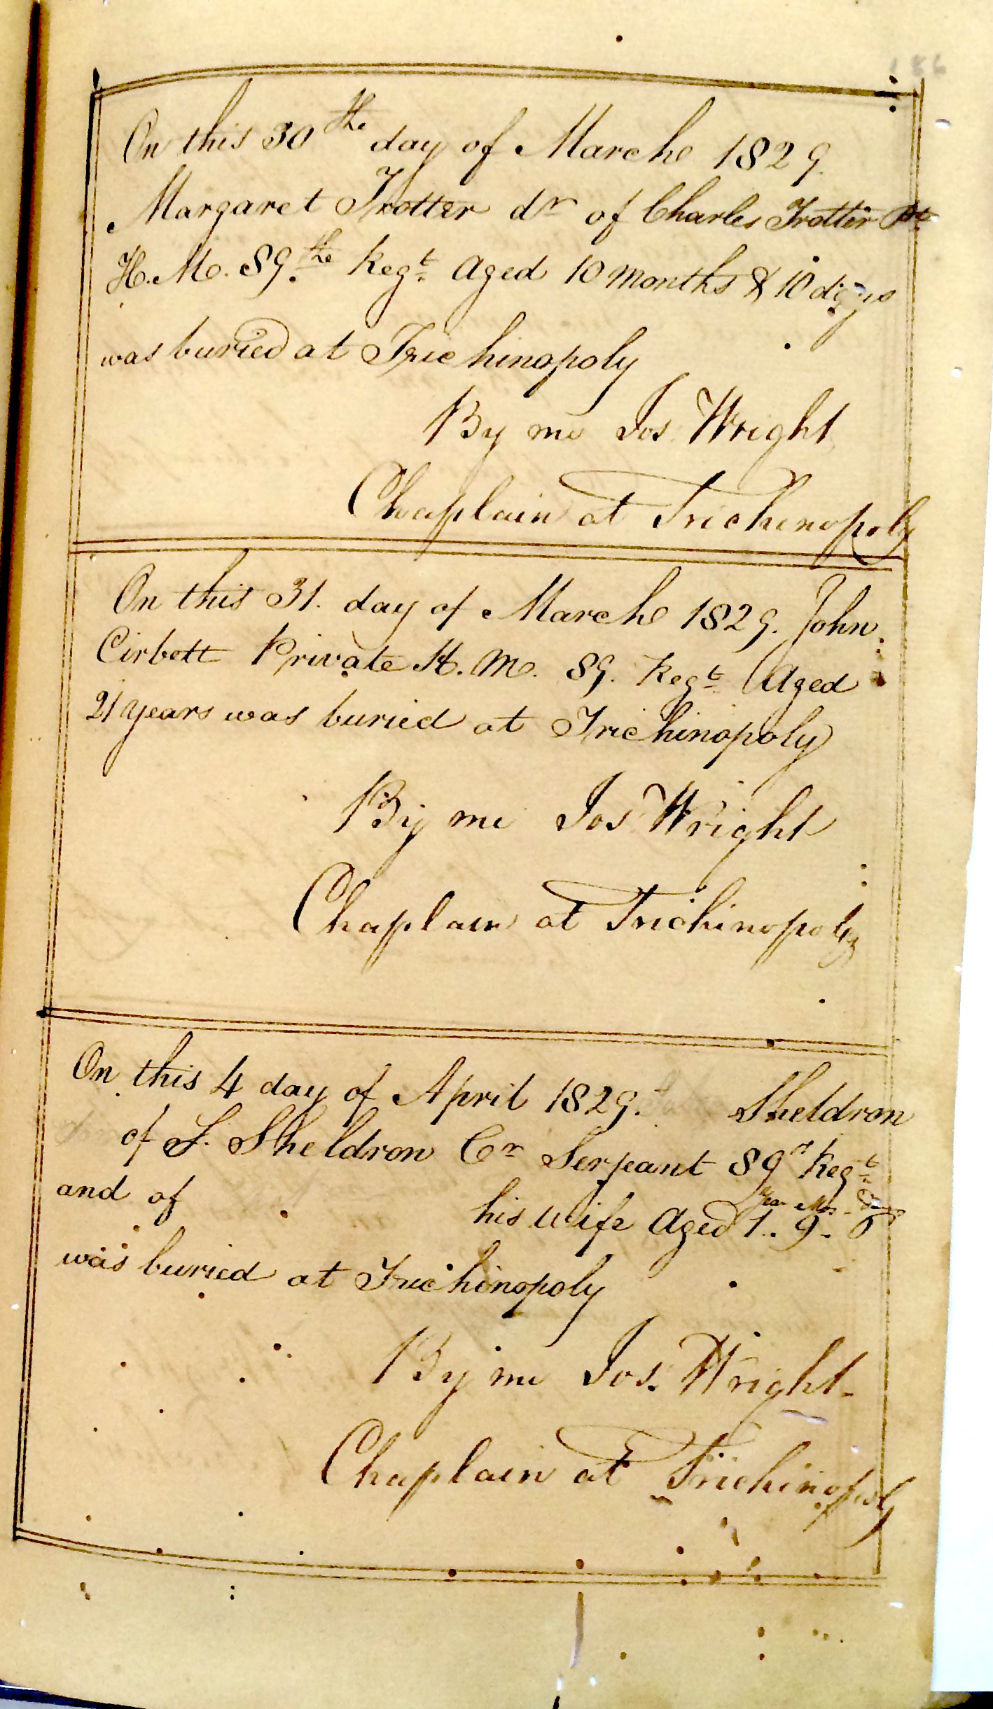 186
On this 30the day of Marche 1829.
Margaret Trotter dr of Charles Trotter Pte
H. M. 89.the Regt. Aged 10 months & 10 days
was buried at Trichinopoly
By me Jos. Wright
Chaplain at Trichinopoly
On this 31. day of Marche 1829. John
Cirbett Private H. M. 89. Regt. Aged
21 years was buried at Trichinopoly
By me Jos Wright
Chaplain at Trichinopoly
On this 4 day of April 1829. Sheldron
of S. Sheldron Cr Serjeant 89 Regt.
and of his wife Aged 1. 9. 6
was buried at Trichinopoly
By me Jos. Wright
Chaplain at Trichinopoly